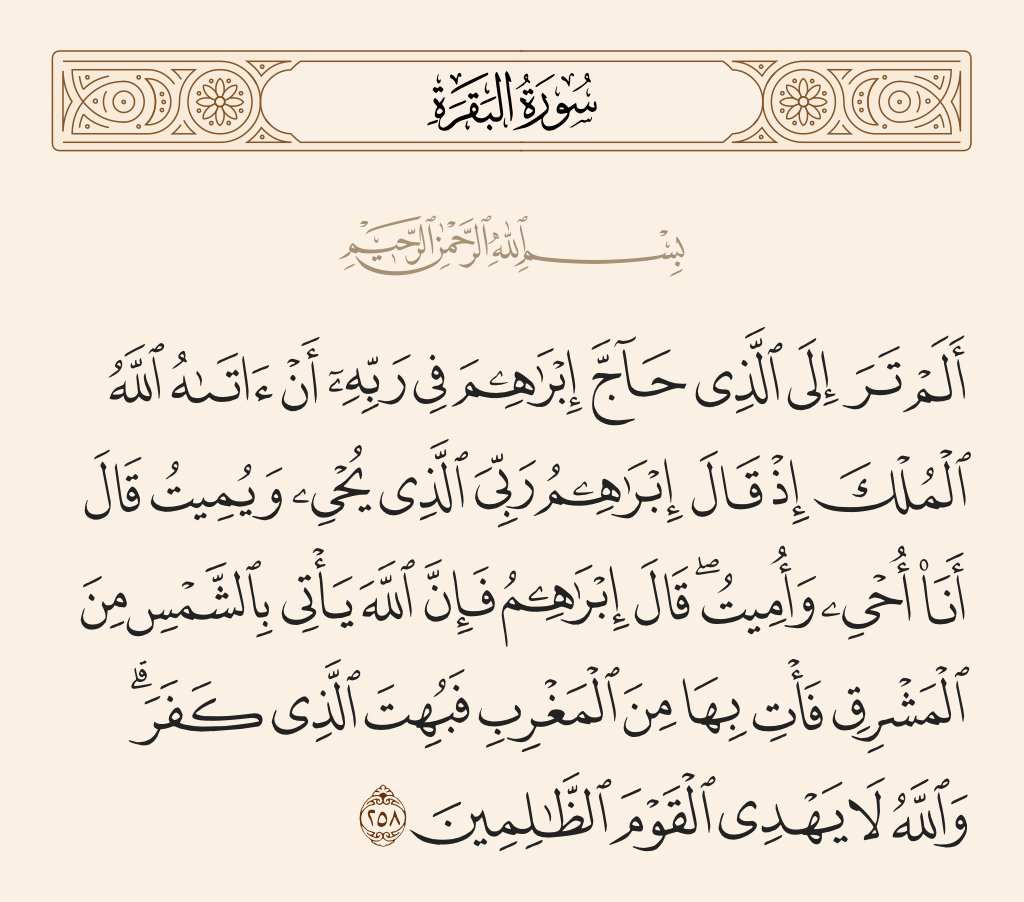 سُورَةُ البَقَرَةِ
بِسْمِ ٱللَّهِ ٱلرَّحْمَٰنِ ٱلرَّحِيمِ
أَلَمْ تَرَ إِلَى ٱلَّذِى حَآجَّ إِبْرَٰهِـۧمَ فِى رَبِّهِۦٓ أَنْ ءَاتَىٰهُ ٱللَّهُ
ٱلْمُلْكَ إِذْ قَالَ إِبْرَٰهِـۧمُ رَبِّىَ ٱلَّذِى يُحْىِۦ وَيُمِيتُ قَالَ
أَنَا۠ أُحْىِۦ وَأُمِيتُ ۖ قَالَ إِبْرَٰهِـۧمُ فَإِنَّ ٱللَّهَ يَأْتِى بِٱلشَّمْسِ مِنَ
ٱلْمَشْرِقِ فَأْتِ بِهَا مِنَ ٱلْمَغْرِبِ فَبُهِتَ ٱلَّذِى كَفَرَ ۗ
وَٱللَّهُ لَا يَهْدِى ٱلْقَوْمَ ٱلظَّٰلِمِينَ ٢٥٨